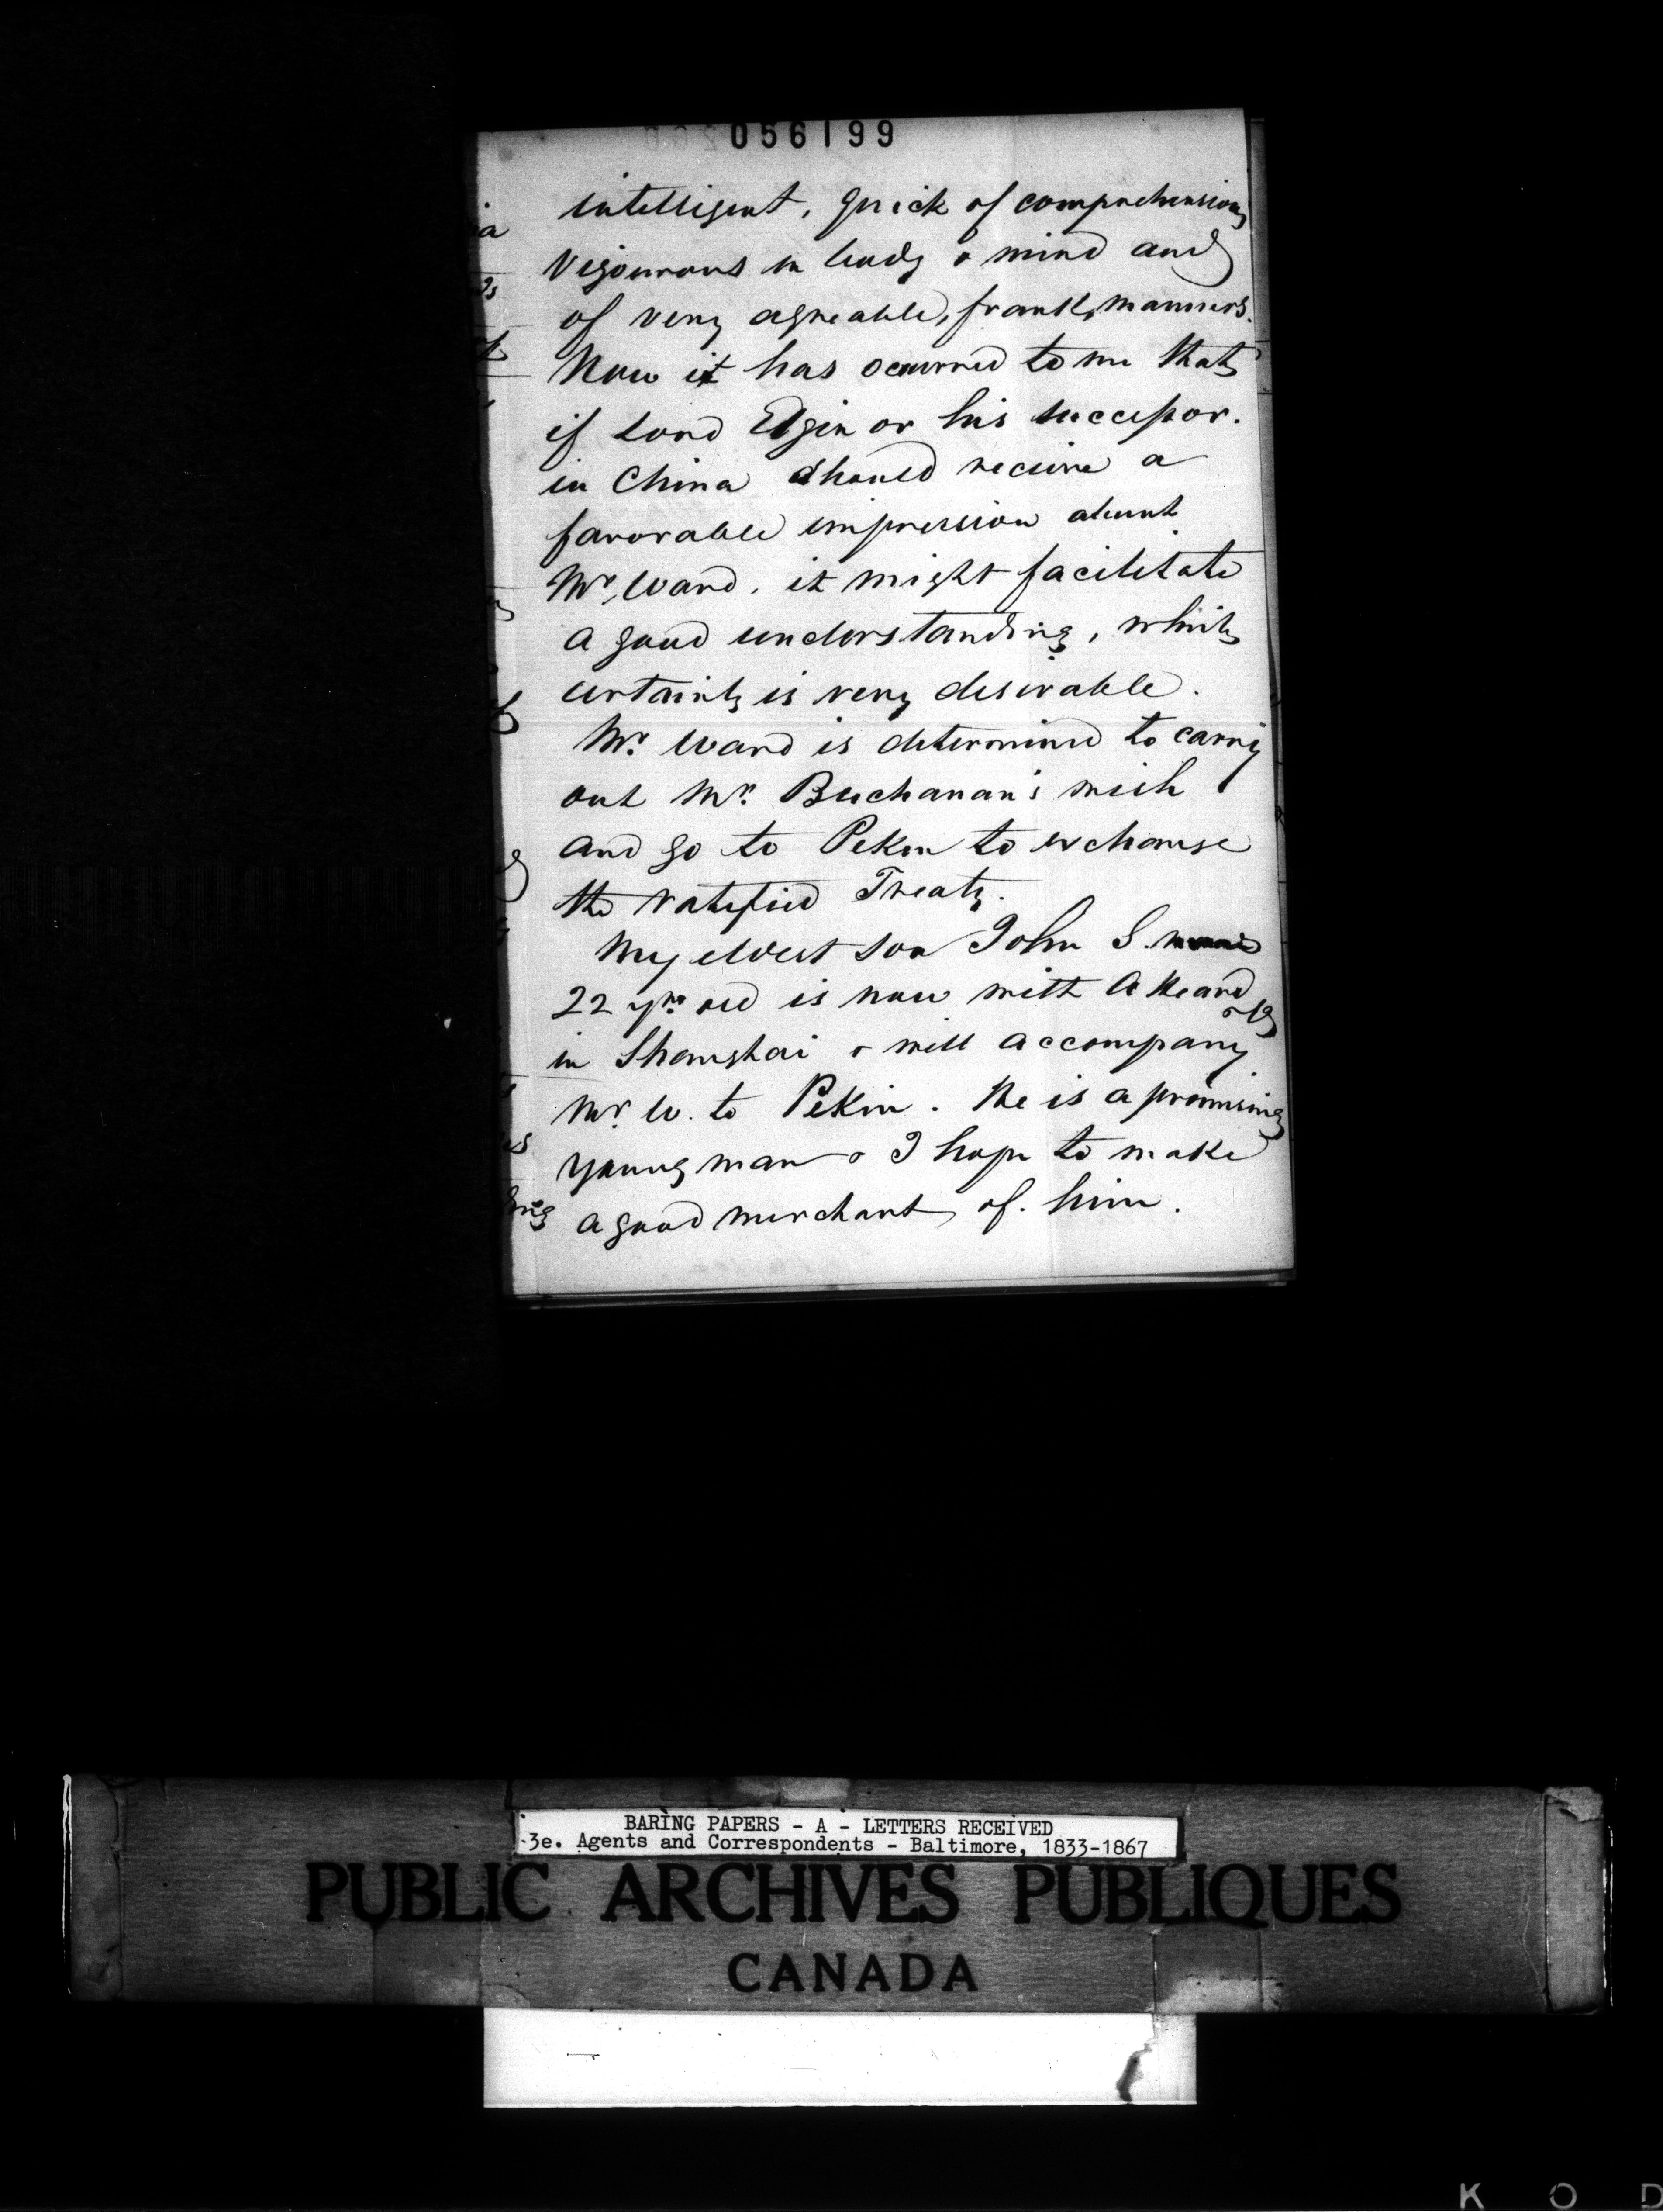 056199
intelligent, quick of comprehension,
vigourous in body & mind and
of very agreable, frank, manners.
Now it has occurred to me that
if Lord Elgin or his successor.
in China should recieve a
favorable impression about
Mr. Ward, it might facilitate
a good understanding, which
certainly is very desirable.
Mr. Ward is determined to carry
out Mr. Buchanan's wish
and go to Pekin to exchange
the ratified Treaty.
My eldest son John S.
22 yrs old is now with A Heard
& Co
in Shanghai & will accompany
Mr. W. to Pekin. He is a promising
young man & I hope to make
a good merchant of. him.
BARING PAPERS - A - LETTERS RECEIVED
3e. Agents and Correspondents - Baltimore, 1833-1867
PUBLIC ARCHIVES PUBLIQUES
CANADA
K O D